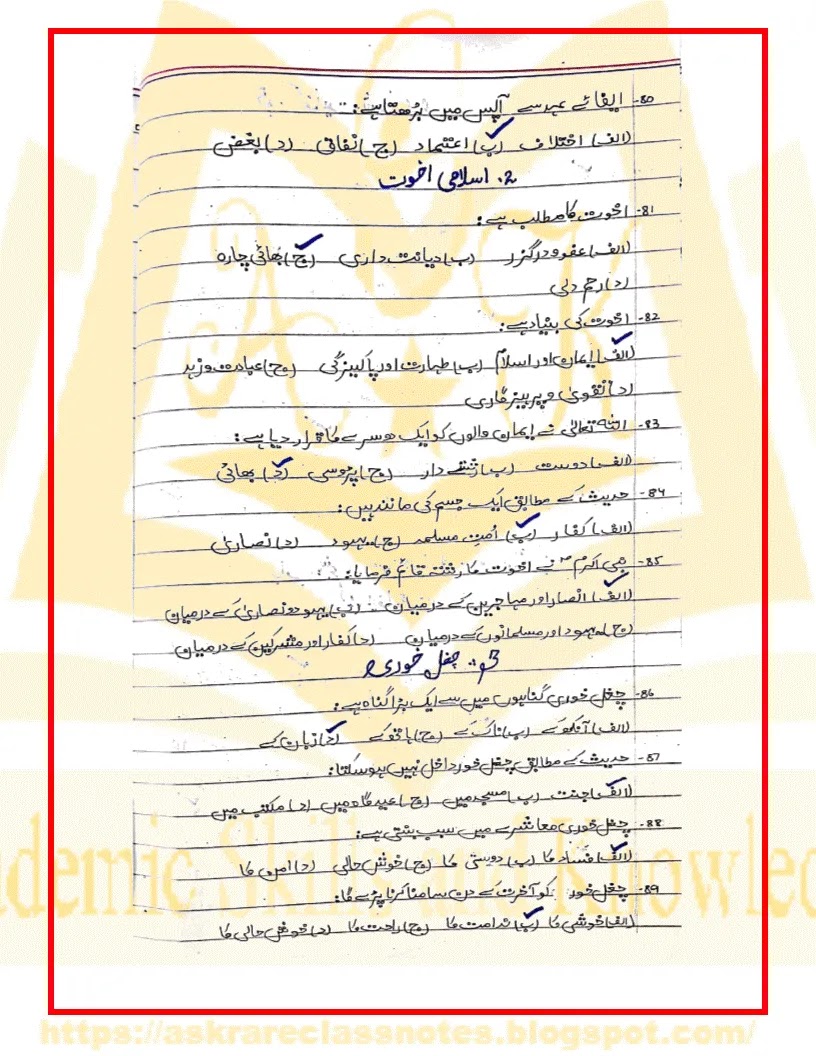 80- ایفائے عہد سے آپس میں بڑھتا ہے:
(الف) اختلاف (ب) اعتماد (ج) نفاق (د) بغض
2. اسلامی اخوت
81- اخوت کا مطلب ہے:
(الف) عفو و درگزر (ب) دیانت داری (ج) بھائی چارہ
(د) رحم دلی
82- اخوت کی بنیاد ہے:
(الف) ایمان اور اسلام (ب) طہارت اور پاکیزگی (ج) عبادت و زہد
(د) تقویٰ و پرہیزگاری
83- اللہ تعالیٰ نے ایمان والوں کو ایک دوسرے کا قرار دیا ہے:
(الف) دوست (ب) رشتے دار (ج) پڑوسی (د) بھائی
84- حدیث کے مطابق ایک جسم کی مانند ہیں:
(الف) کفار (ب) اُمتِ مسلمہ (ج) یہود (د) نصاریٰ
85- نبی اکرمؐ نے اخوت کا رشتہ قائم فرمایا:
(الف) انصار اور مہاجرین کے درمیان (ب) یہود و نصاریٰ کے درمیان
(ج) یہود اور مسلمانوں کے درمیان (د) کفار اور مشرکین کے درمیان
3. چغل خوری
86- چغل خوری گناہوں میں سے ایک بڑا گناہ ہے:
(الف) آنکھ کے (ب) ناک کے (ج) ہاتھ کے (د) زبان کے
87- حدیث کے مطابق چغل خور داخل نہیں ہو سکتا:
(الف) جنت (ب) مسجد میں (ج) عید گاہ میں (د) مکتب میں
88- چغل خوری معاشرے میں سبب بنتی ہے:
(الف) فساد کا (ب) دوستی کا (ج) خوش حالی (د) امن کا
89- چغل خور کو آخرت کے دن سامنا کرنا پڑے گا:
(الف) خوشی کا (ب) ندامت کا (ج) راحت کا (د) خوش حالی کا
Academic Skills and Knowledge
https://askrareclassnotes.blogspot.com/